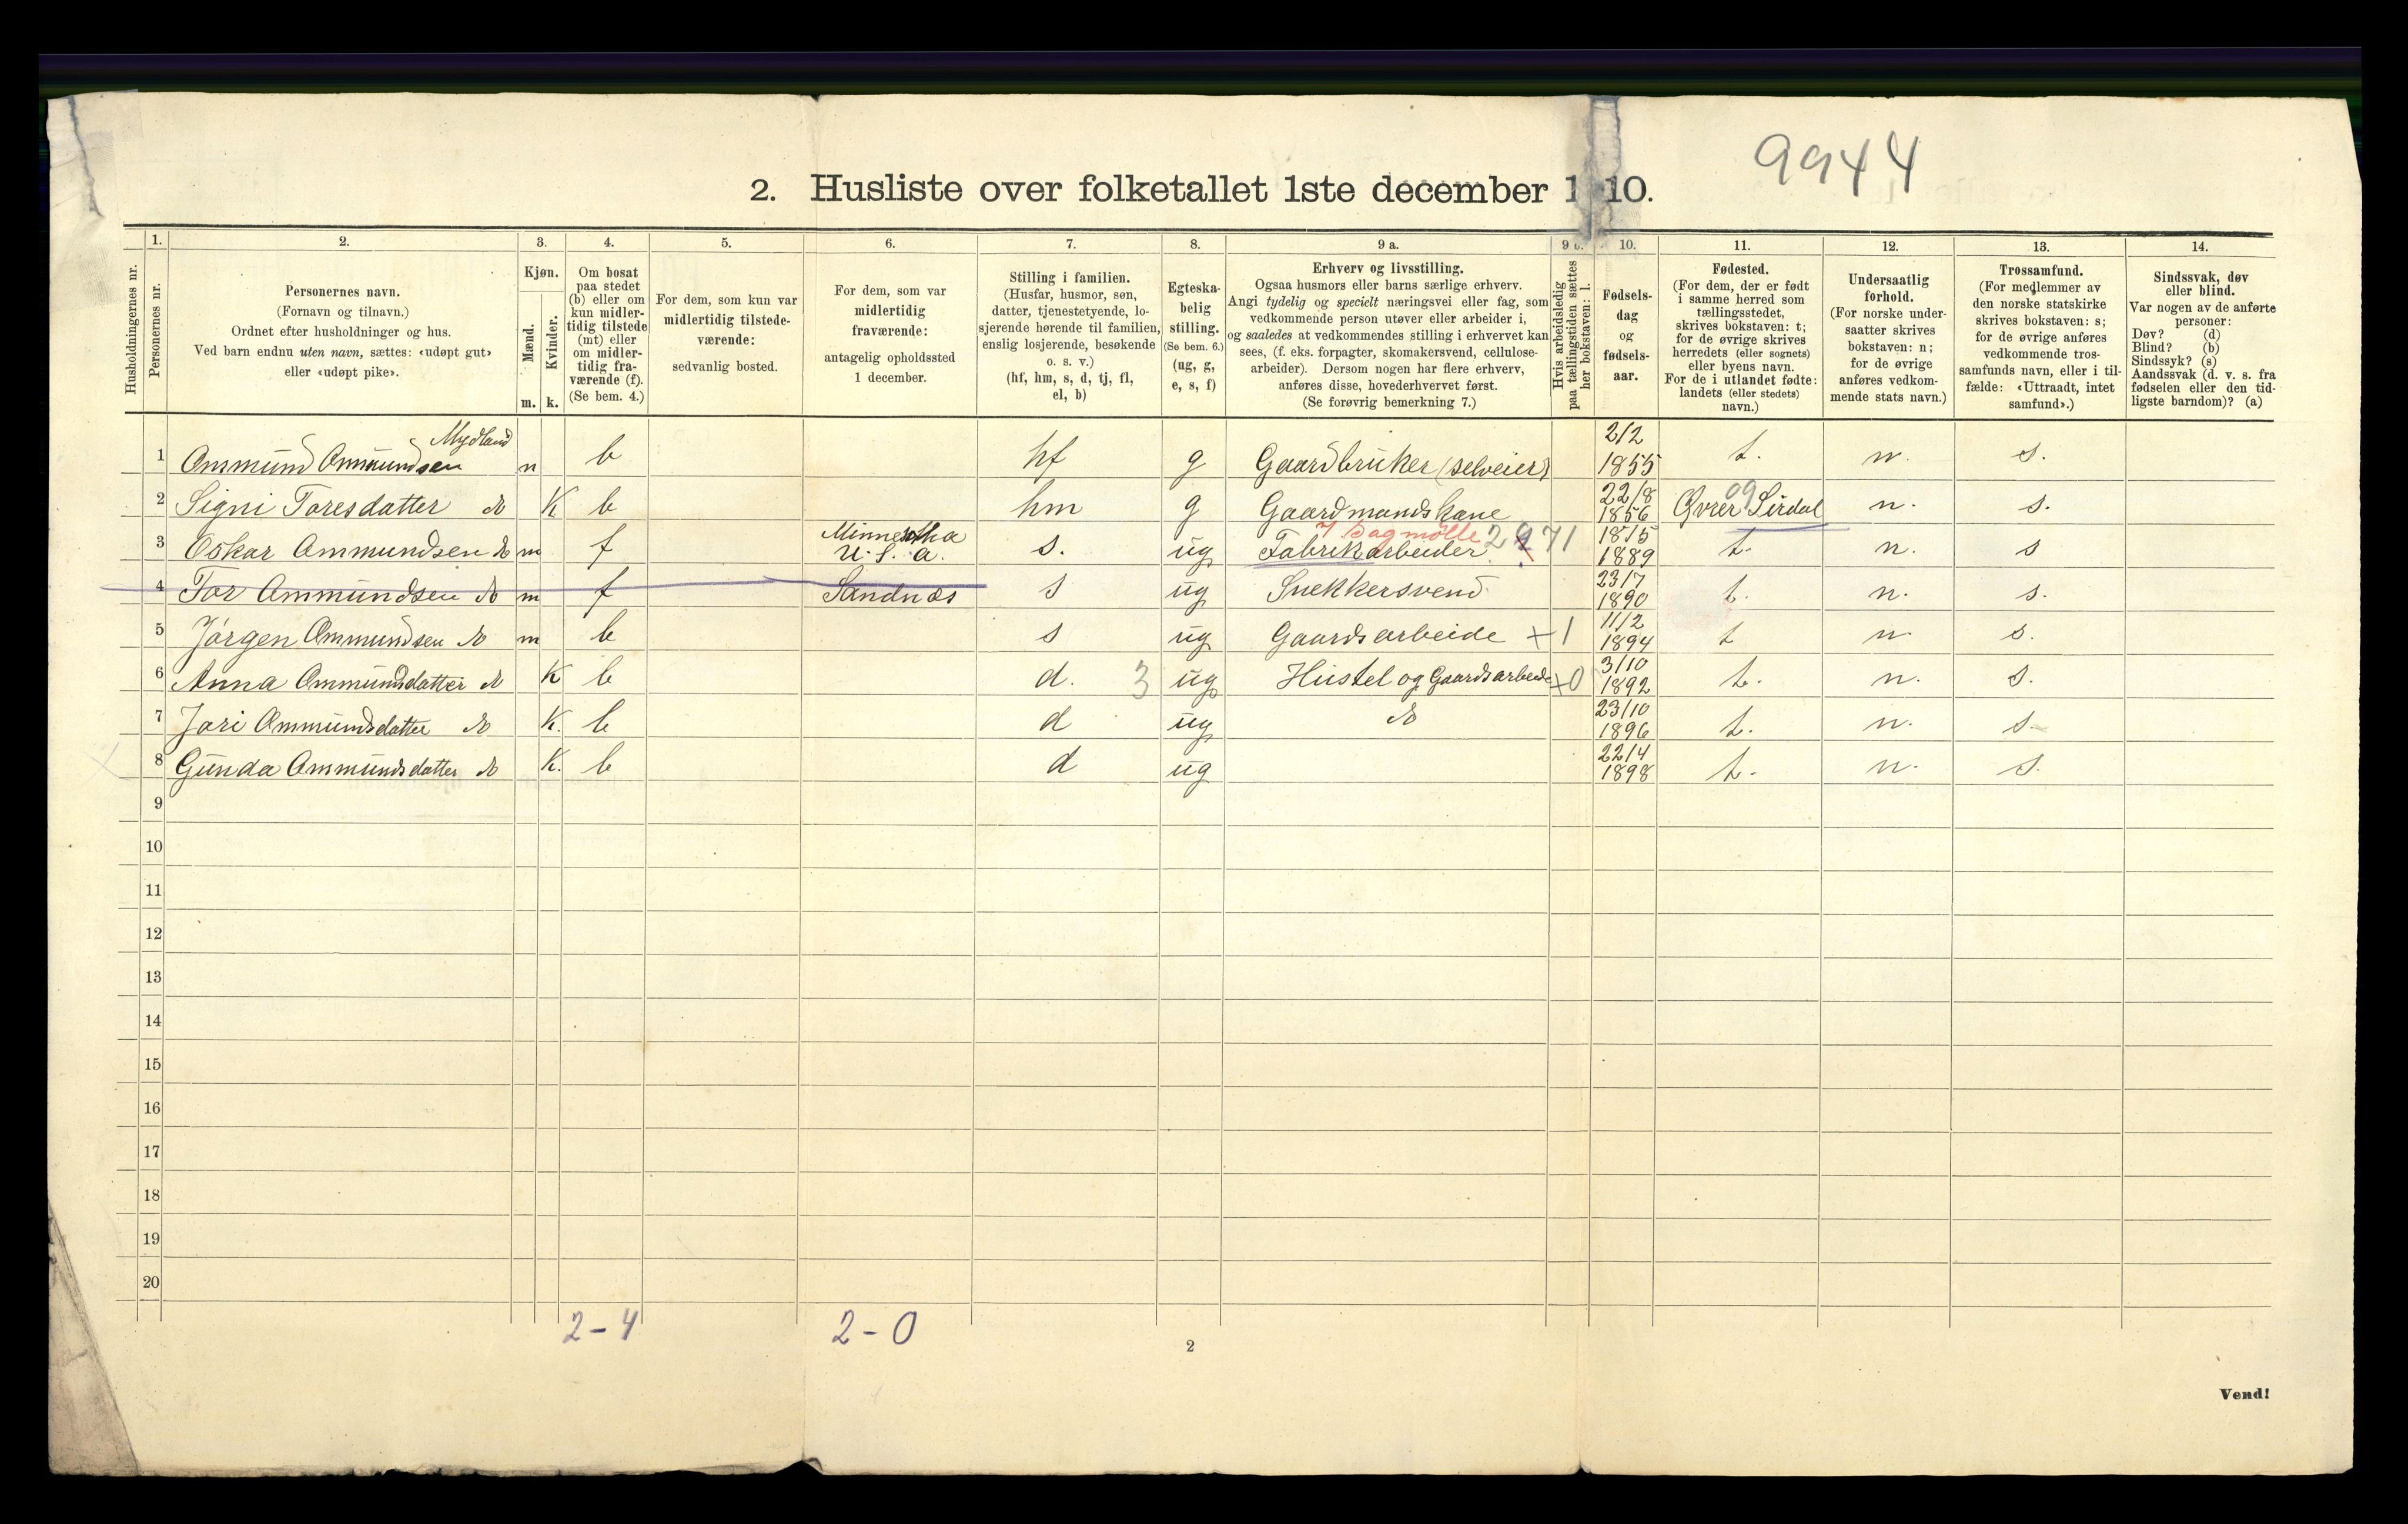 9944
2. Husliste over folketallet 1ste december 1 10.
Husholdningernes nr.
1.
Personernes nr.
2.
Personernes navn.
(Fornavn og tilnavn.)
Ordnet efter husholdninger og hus.
Ved barn endnu uten navn, sættes: «udøpt gut»
eller «udøpt pike».
3.
Kjøn.
Mænd.
Kvinder.
m. k.
4.
Om bosat
paa stedet
(b) eller om
kun midler-
tidig tilstede
(mt) eller
om midler-
tidig fra-
værende (f).
(Se bem. 4.)
5.
For dem, som kun var
midlertidig tilstede-
værende:
sedvanlig bosted.
6.
For dem, som var
midlertidig
fraværende:
antagelig opholdssted
1 december.
7.
Stilling i familien.
(Husfar, husmor, søn,
datter, tjenestetyende, lo-
sjerende hørende til familien,
enslig losjerende, besøkende
o. s. v.)
(hf, hm, s, d, tj, fl,
el, b)
8.
Egteska-
belig
stilling.
(Se bem. 6.)
(ug, g,
e, s, f)
9 a.
Erhverv og livsstilling.
Ogsaa husmors eller barns særlige erhverv.
Angi tydelig og specielt næringsvei eller fag, som
vedkommende person utøver eller arbeider i,
og saaledes at vedkommendes stilling i erhvervet kan
sees, (f. eks. forpagter, skomakersvend, cellulose-
arbeider). Dersom nogen har flere erhverv,
anføres disse, hovederhvervet først.
(Se forøvrig bemerkning 7.)
9 b.
Hvis arbeidsledig
paa tællingstiden sættes
her bokstaven: l.
10.
Fødsels-
dag
og
fødsels-
aar.
11.
Fødested.
(For dem, der er født
i samme herred som
tællingsstedet,
skrives bokstaven: t;
for de øvrige skrives
herredets (eller sognets)
eller byens navn.
For de i utlandet fødte:
landets (eller stedets)
navn.)
12.
Undersaatlig
forhold.
(For norske under-
saatter skrives
bokstaven: n;
for de øvrige
anføres vedkom-
mende stats navn.)
13.
Trossamfund.
(For medlemmer av
den norske statskirke
skrives bokstaven: s;
for de øvrige anføres
vedkommende tros-
samfunds navn, eller i til-
fælde: «Uttraadt, intet
samfund».)
14.
Sindssvak, døv
eller blind.
Var nogen av de anførte
personer:
Døv? (d)
Blind? (b)
Sindssyk? (s)
Aandssvak (d. v. s. fra
fødselen eller den tid-
ligste barndom)? (a)
Mydland 2/2
1 Ommund Ommundsen m b hf g Gaardbruker (selveier) 1855 t. n. s.
22/8 09
2 Signi Toresdatter K b hm g Gaardmandskone 1856 Øvre Sirdal n. s.
Minnesotha I Sagmølle 2 9 71 18/5
3 Oskar Ammundsen m f U. S. a. s. ug Fabrikarbeider 1889 t. n. s
23/7
4 Tor Ammundsen m f Sandnæs s ug Snekkersvend 1890 t. n. s.
11/2
5 Jørgen Ommundsen m b s ug Gaardsarbeide +1 1894 t n. s.
3/10
6 Anna Ommundsdatter K b d. 3 ug Hustel og Gaardsarbeide +0 1892 t. n. s.
23/10
7 Jori Ommundsdatter K. b d ug 1896 t. n. s.
22/4
8 Gunda Ommundsdatter K. b d ug 1898 t. n. s.
9
10
11
12
13
14
15
16
17
18
19
20
2-4 2-0
2
Vend!